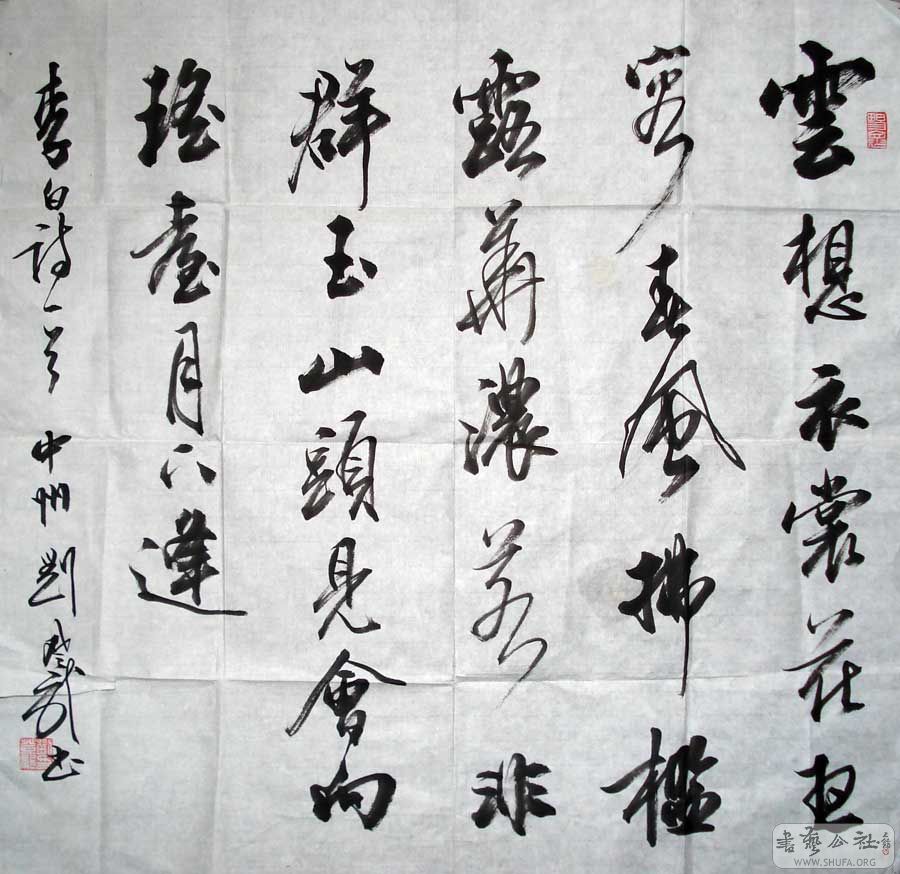 雲想衣裳花想
容春風拂檻
露華濃若非
群玉山頭見會向
瑤臺月下逢
李白詩一首 中州 劉 書
書藝公社
WWW.SHUFA.ORG